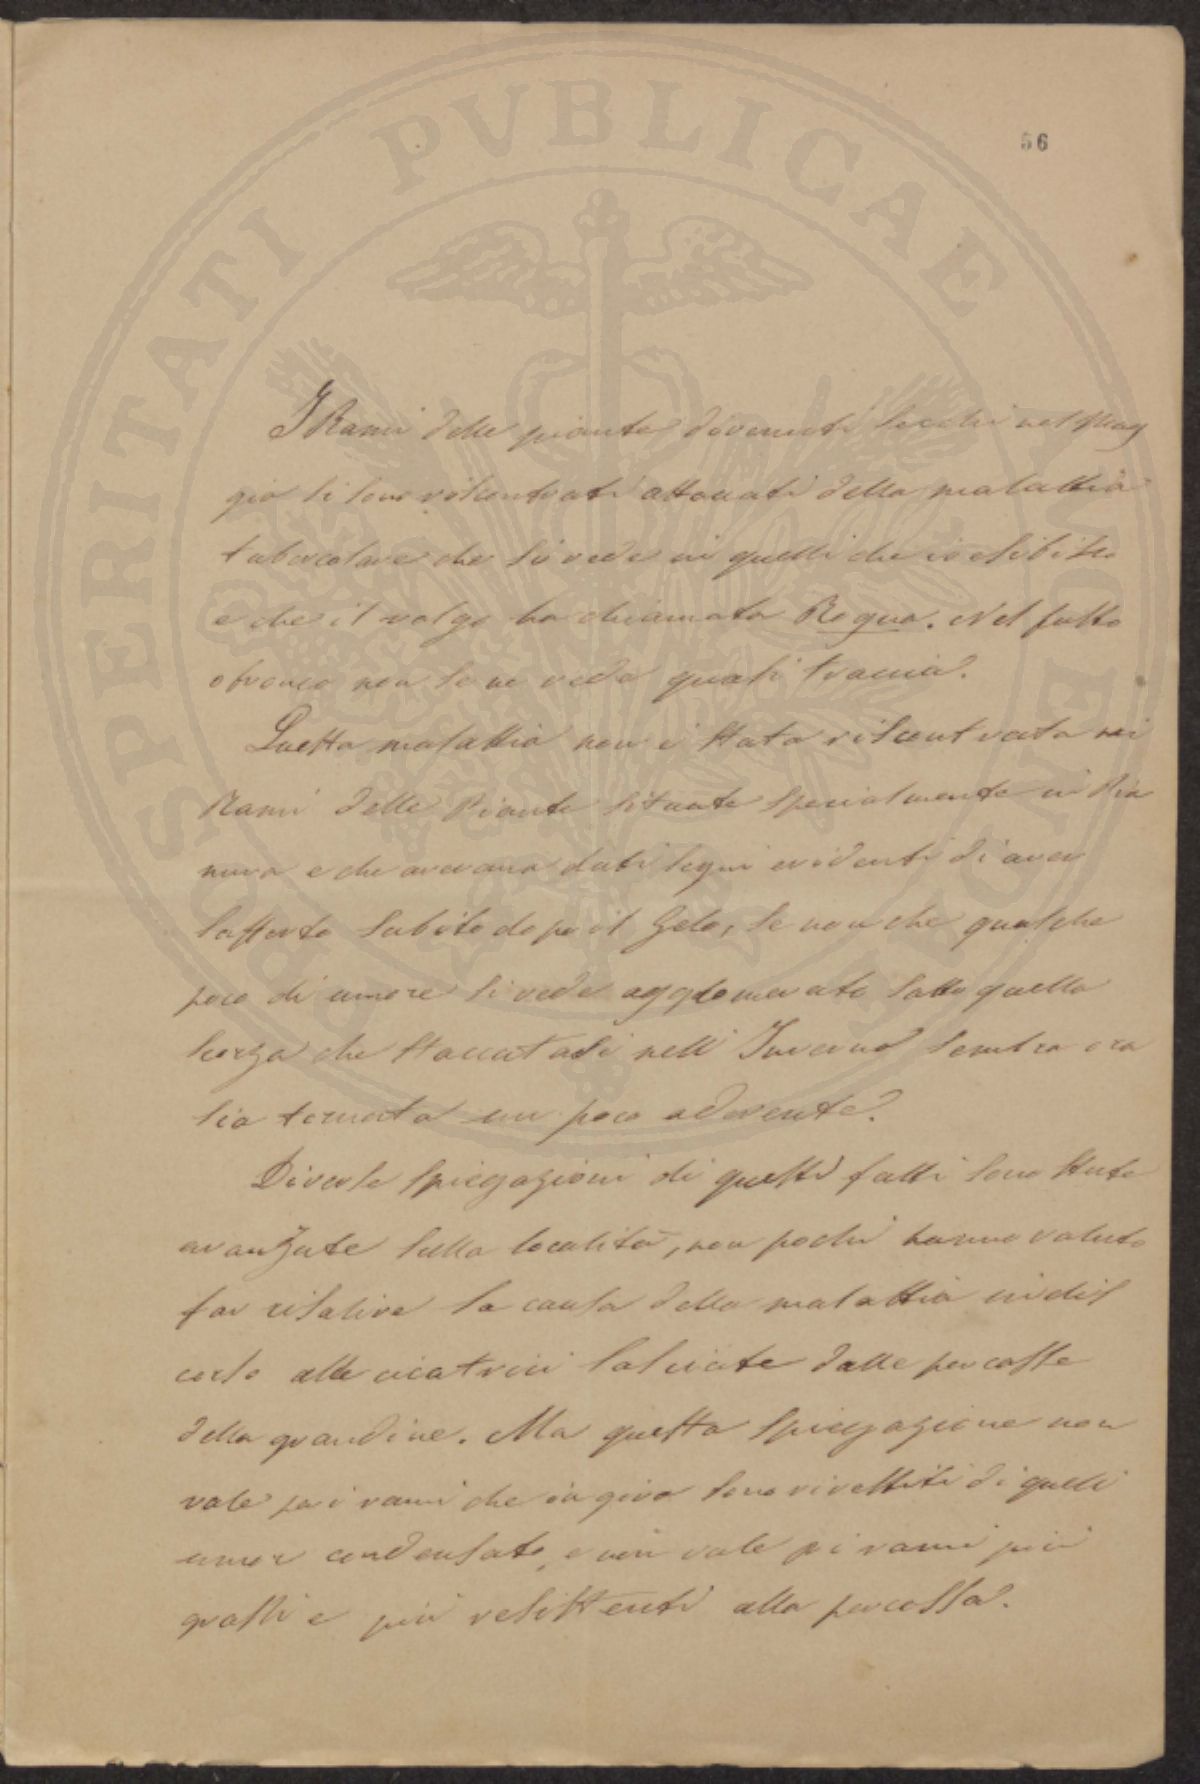 PROSPERITATI PVBLICAE AVGENDAE
56
I Rami delle piante divenuti secchi nel Mag
gio si sono riscontrati attaccati della malattia
tubercolare che si vede in quelli che
e che il volgo ha chiamata Rogna. Nel fusto
o tronco non se ne vede quasi traccia.
Questa malattia non è stata riscontrata nei
Rami delle Piante situate specialmente in Pia
nura e che avevano dati segni evidenti di aver
sofferto subito dopo il Gelo, se non che qualche
poco di umore si vede agglomerato sotto quella
scorza che staccatasi nell' Inverno sembra ora
sia tornata un poco aderente.
Diverse spiegazioni di questi fatti sono state
avanzate sulla località, non pochi hanno voluto
far risalire la causa della malattia in dis
corso alle cicatrici lasciate dalle percosse
della grandine. Ma questa spiegazione non
vale pei rami che in giro sono rivestiti di quelli
umor condensato, e non vale pei rami più
grossi e più resistenti alla percossa.